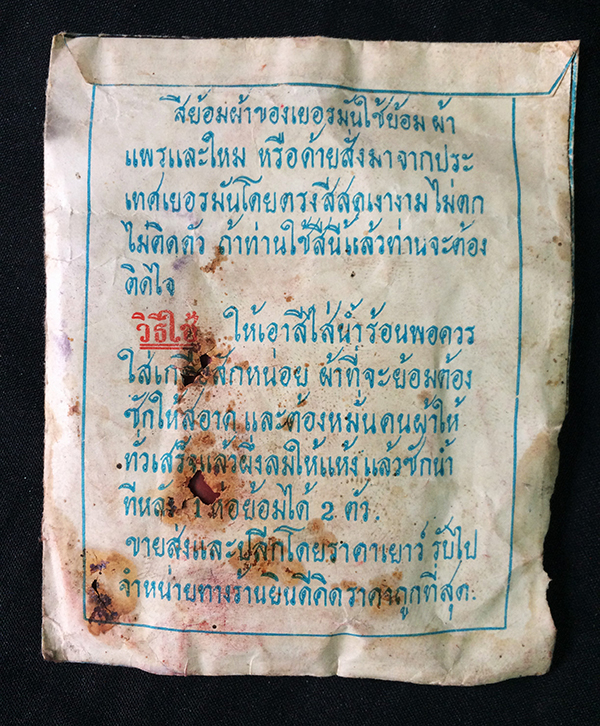 สีย้อมผ้าของเยอรมันใช้ย้อม ผ้า
แพรและใหม หรือด้ายสั่งมาจากประ
เทศเยอรมันโดยตรงสีสดเงางาม ไม่ตก
ไม่ติดตัว ถ้าท่านใช้สีนี้แล้วท่านจะต้อง
ติดใจ
วิธีใช้ ให้เอาสีใส่น้ำร้อนพอควร
ใส่เกลือสักหน่อย ผ้าที่จะย้อมต้อง
ซักให้สอาด และต้องหมั่นคนผ้าให้
ทั่วเสร็จแล้วผึ่งลมให้แห้ง แล้วซักน้ำ
ทีหลัง 1 ห่อย้อมได้ 2 ตัว.
ขายส่งและปลีกโดยราคาเยาว์ รับไป
จำหน่ายทางร้านยินดีคิดราคาถูกที่สุด.